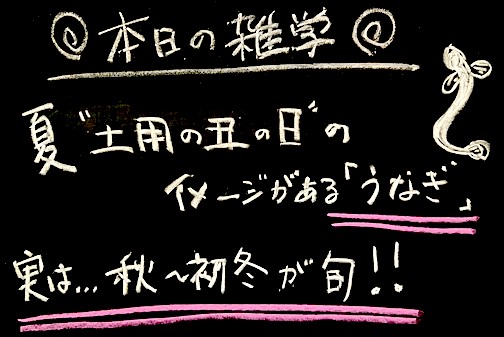 本日の雑学
夏"土用の丑の日"の
イメージがある「うなぎ」
実は…秋〜初冬が旬!!